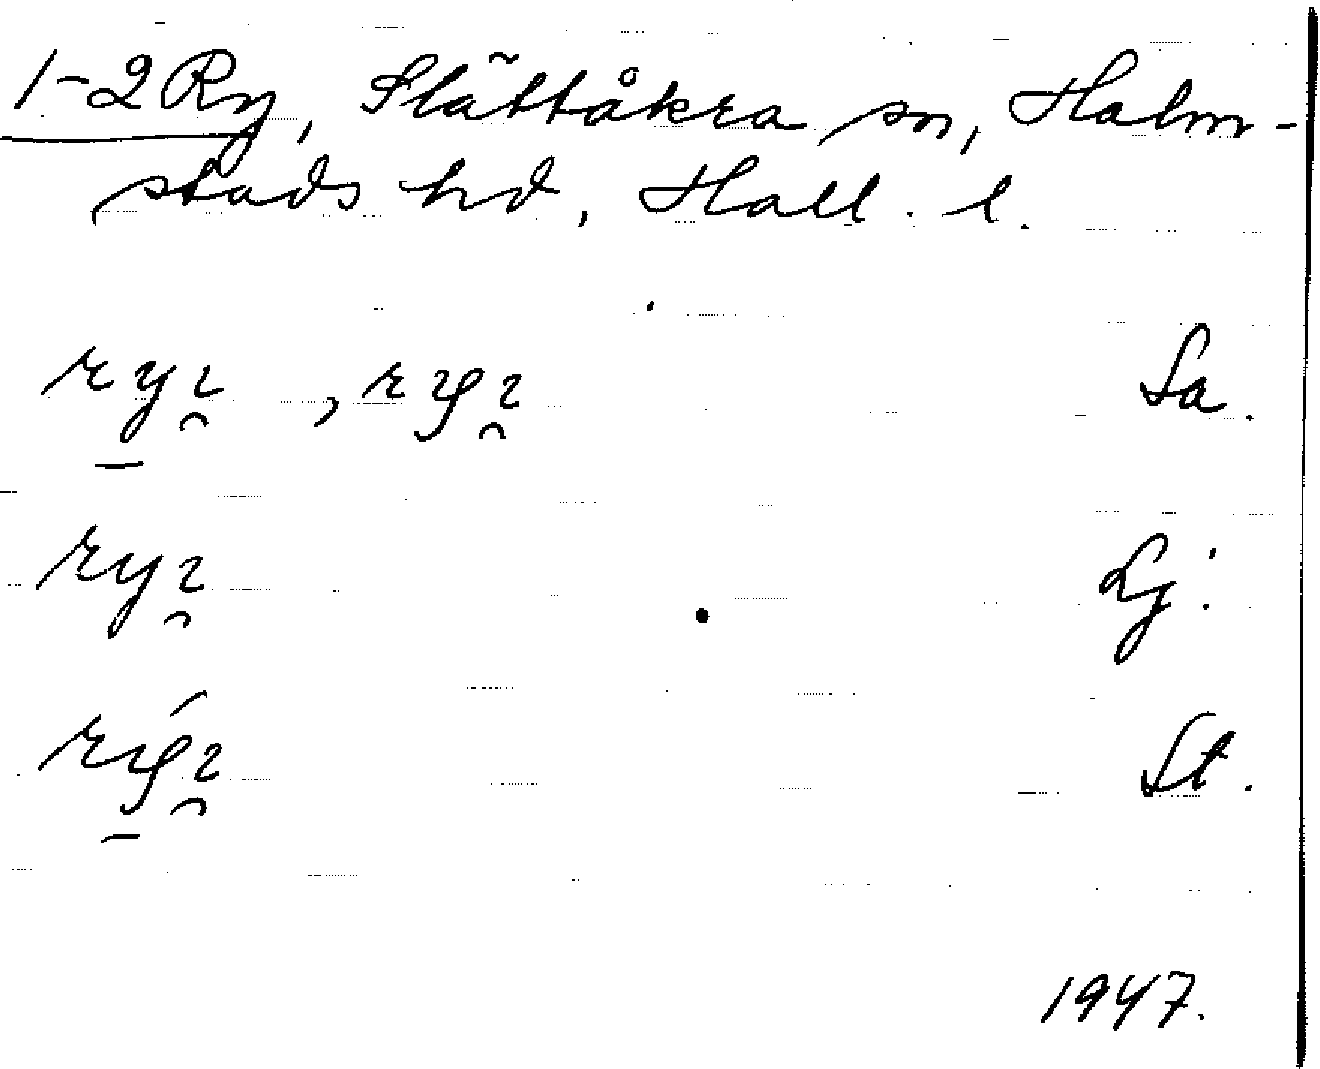 1-2 Ry, Slättåkra sn, Halm-
stads hd, Hall. l.
ryı̯, ryı̯ Sa.
ryı̯ Lj.
rýı̯ St.
1947.